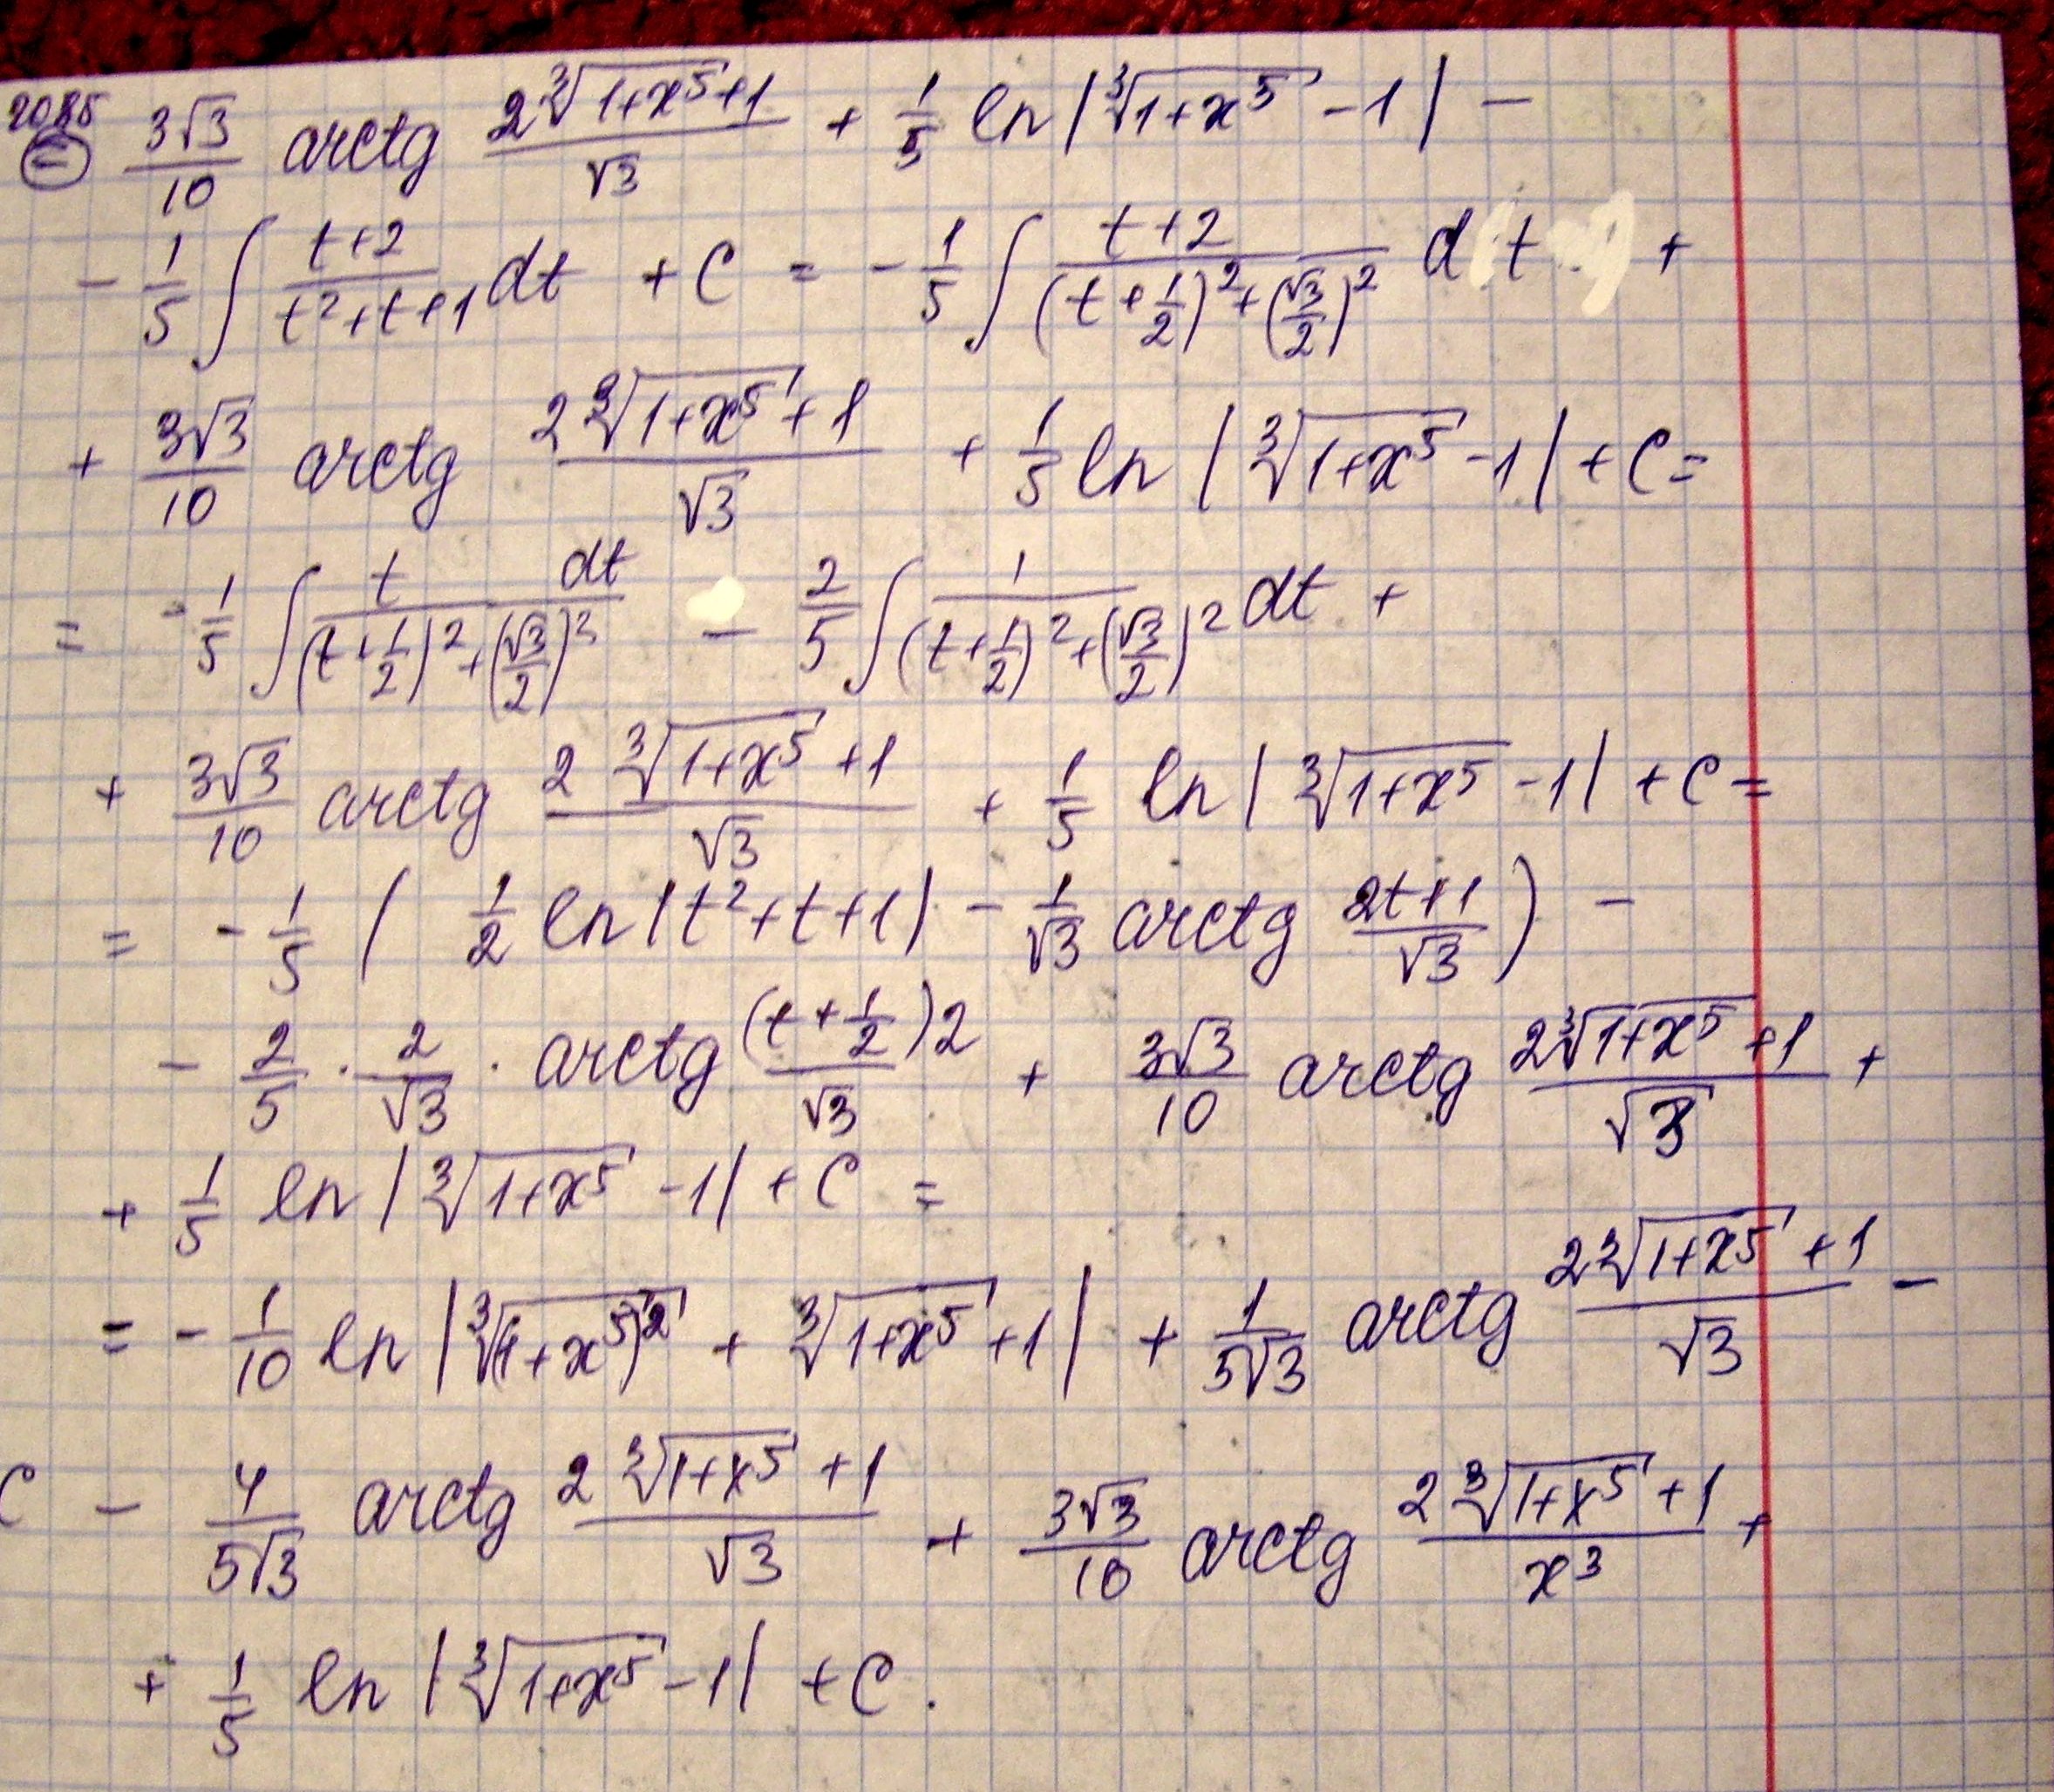 2085
= 3√3/10 arctg (2∛(1+x⁵)+1)/√3 + 1/5 ln|∛(1+x⁵) -1| -
- 1/5 ∫ (t+2)/(t²+t+1) dt + C = - 1/5 ∫ (t+2)/((t+1/2)²+(√3/2)²) d t +
+ 3√3/10 arctg (2∛(1+x⁵)+1)/√3 + 1/5 ln|∛(1+x⁵) -1| + C =
= - 1/5 ∫ t dt/((t+1/2)²+(√3/2)²) - 2/5 ∫ 1/((t+1/2)²+(√3/2)²) dt +
+ 3√3/10 arctg (2∛(1+x⁵)+1)/√3 + 1/5 ln|∛(1+x⁵) -1| + C =
= - 1/5 ( 1/2 ln|t²+t+1| - 1/√3 arctg (2t+1)/√3 ) -
- 2/5 · 2/√3 · arctg (t+1/2)2/√3 + 3√3/10 arctg (2∛(1+x⁵)+1)/√3 +
+ 1/5 ln|∛(1+x⁵) -1| + C =
= - 1/10 ln|∛(1+x⁵)² + ∛(1+x⁵) +1| + 1/(5√3) arctg (2∛(1+x⁵)+1)/√3 -
C - 4/(5√3) arctg (2∛(1+x⁵)+1)/√3 + 3√3/10 arctg (2∛(1+x⁵)+1)/x³ +
+ 1/5 ln|∛(1+x⁵) -1| + C.